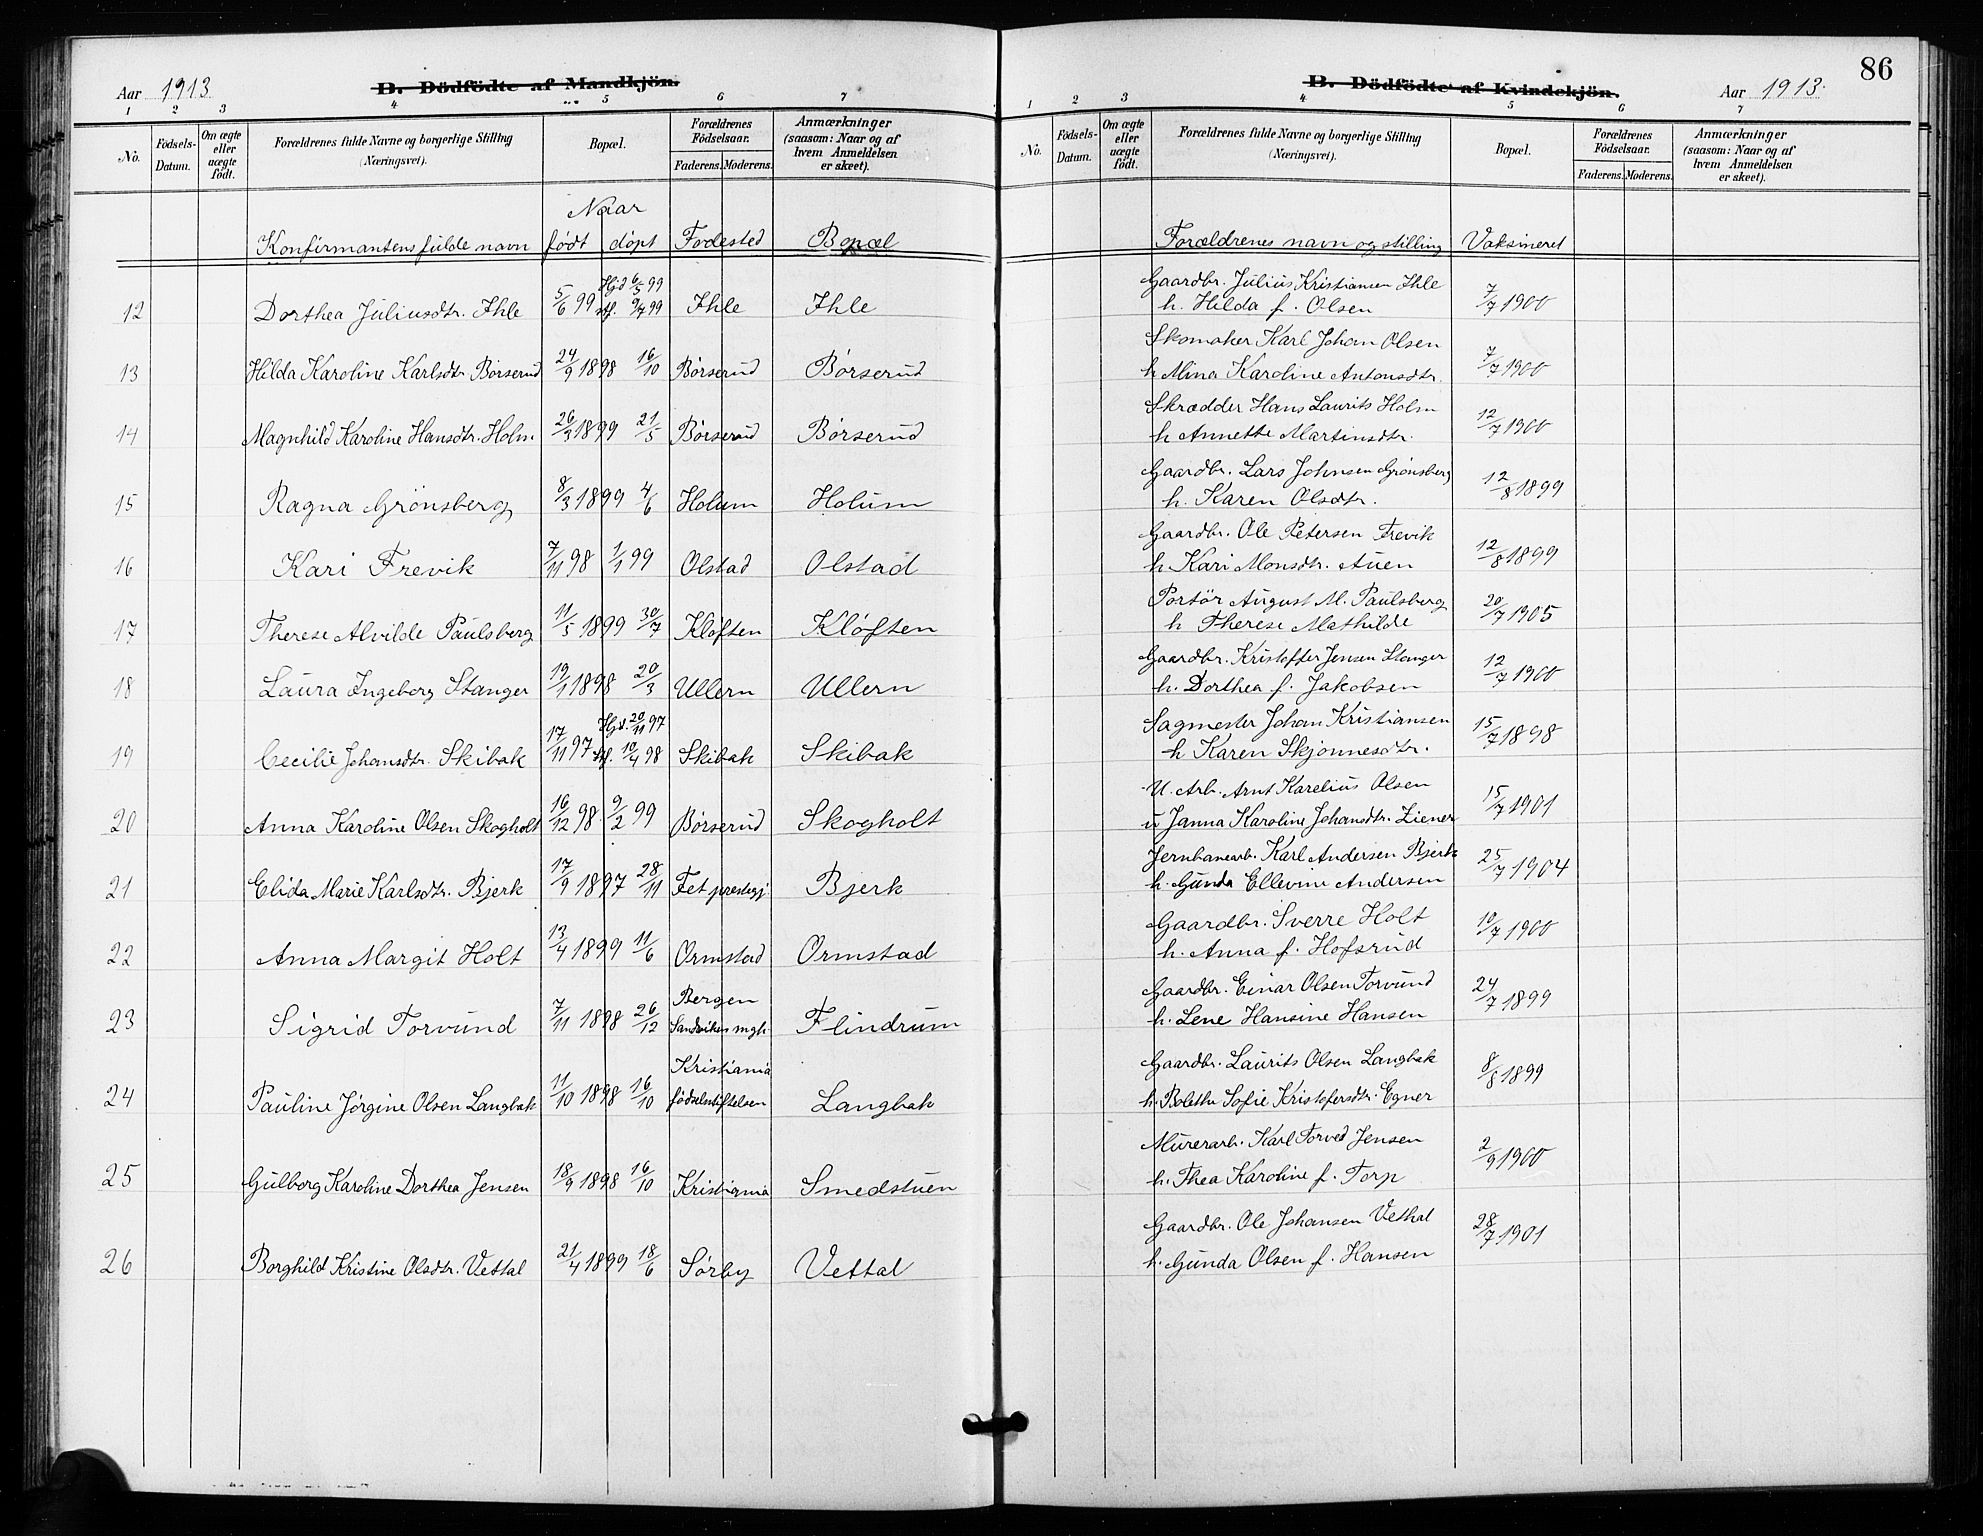 Aar 1913
B. Dödfödte af Mandkjön.
1 2 3 4 5 6 7
No. Födsels-Datum. Om ægte eller uægte födt. Forældrenes fulde Navne og borgerlige Stilling (Næringsvei). Bopæl. Forældrenes Födselsaar. Faderens. Moderens. Anmærkninger (saasom: Naar og af hvem Anmeldelsen er skeet).
Naar
Konfirmantens fulde navn født døpt Fødested Bopæl
12 Dorthea Juliusdtr. Ihle 5/6 99 Hjd 6/5 99 stf. 9/7 99 Ihle Ihle
13 Hilda Karoline Karlsdtr. Børserud 24/9 1898 16/10 Børserud Børserud
14 Magnhild Karoline Hansdtr. Holm 26/3 1899 21/5 Børserud Børserud
15 Ragna Grønsberg 8/3 1899 4/6 Holum Holum
16 Kari Frevik 7/11 98 1/1 99 Olstad Olstad
17 Therese Alvilde Paulsberg 11/5 1899 30/7 Kløften Kløften
18 Laura Ingeborg Stanger 19/1 1898 20/3 Ullern Ullern
19 Cecilie Johansdtr. Skibak 17/11 97 Hjd. 20/11 97 stf. 10/4 98 Skibak Skibak
20 Anna Karoline Olsen Skogholt 16/12 98 9/2 99 Børserud Skogholt
21 Elida Marie Karlsdtr. Bjerk 17/9 1897 28/11 Fet prestegj. Bjerk
22 Anna Margit Holt 13/4 1899 11/6 Ormstad Ormstad
23 Sigrid Torvund 7/11 1898 26/12 Bergen Sandvikens mgh. Flindrum
24 Pauline Jørgine Olsen Langbak 11/10 1898 16/10 Kristiania fødselsstiftelsen Langbak
25 Gulborg Karoline Dorthea Jensen 18/9 1898 16/10 Kristiania Smedstuen
26 Borghild Kristine Olsdtr. Vettal 21/4 1899 18/6 Sørby Vettal
86
B. Dödfödte af Kvindekjön.
Aar 1913.
1 2 3 4 5 6 7
No. Födsels-Datum. Om ægte eller uægte födt. Forældrenes fulde Navne og borgerlige Stilling (Næringsvei). Bopæl. Forældrenes Födselsaar. Faderens. Moderens. Anmærkninger (saasom: Naar og af hvem Anmeldelsen er skeet).
Forældrenes navn og stilling Vaksineret
Gaardbr. Julius Kristiansen Ihle
h. Hilda f. Olsen 7/7 1900
Skomaker Karl Johan Olsen
h Mina Karoline Antonsdtr. 7/7 1900
Skrædder Hans Laurits Holm
h Annette Martinsdtr. 12/7 1900
Gaardbr. Lars Johnsen Grønsberg
h. Karen Olsdtr. 12/8 1899
Gaardbr. Ole Petersen Frevik
h Kari Monsdtr. Auen 12/8 1899
Portör August M. Paulsberg
h Therese Mathilde 20/7 1905
Gaardbr. Kristoffer Jensen Stanger
h. Dorthea f. Jakobsen 12/7 1900
Sagmester Johan Kristiansen
h Karen Skjønnesdtr. 15/7 1898
U. Arb. Arnt Karelius Olsen
u Janna Karoline Johansdtr. Ziener 15/7 1901
Jernbanearb. Karl Andersen Bjerk
h. Gunda Ellevine Andersen 25/7 1904
Gaardbr. Sverre Holt
h. Anna f. Hofsrud 10/7 1900
Gaardbr. Einar Olsen Torvund
h. Lene Hansine Hansen 24/7 1899
Gaardbr. Laurits Olsen Langbak
h. Bolethe Sofie Kristofersdtr. Egner 8/8 1899
Murerarb. Karl Torved Jensen
h. Thea Karoline f. Torp 2/9 1900
Gaardbr. Ole Johansen Vethal
h. Gunda Olsen f. Hansen 28/7 1901